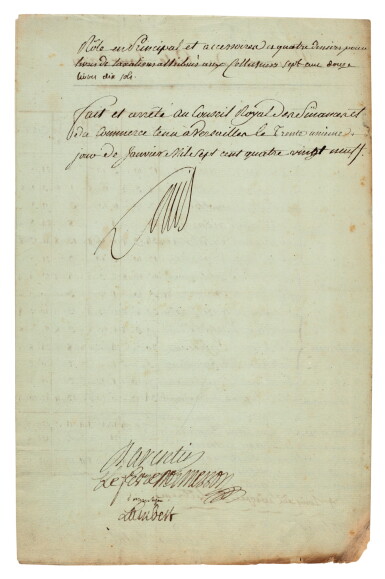 Rôle en Principal et accessoires de quatre deniers pour
livre de taxations attribués aux Collecteurs sept cent douze
livres dix sols
Fait et arrêté au Conseil Royal des finances et
du Commerce tenu à Versailles le Trente unieme
jour de Janvier Mil sept cent quatre vingt neuf.
Louis
Barentin
Lefevre d'ormesson
Lambert